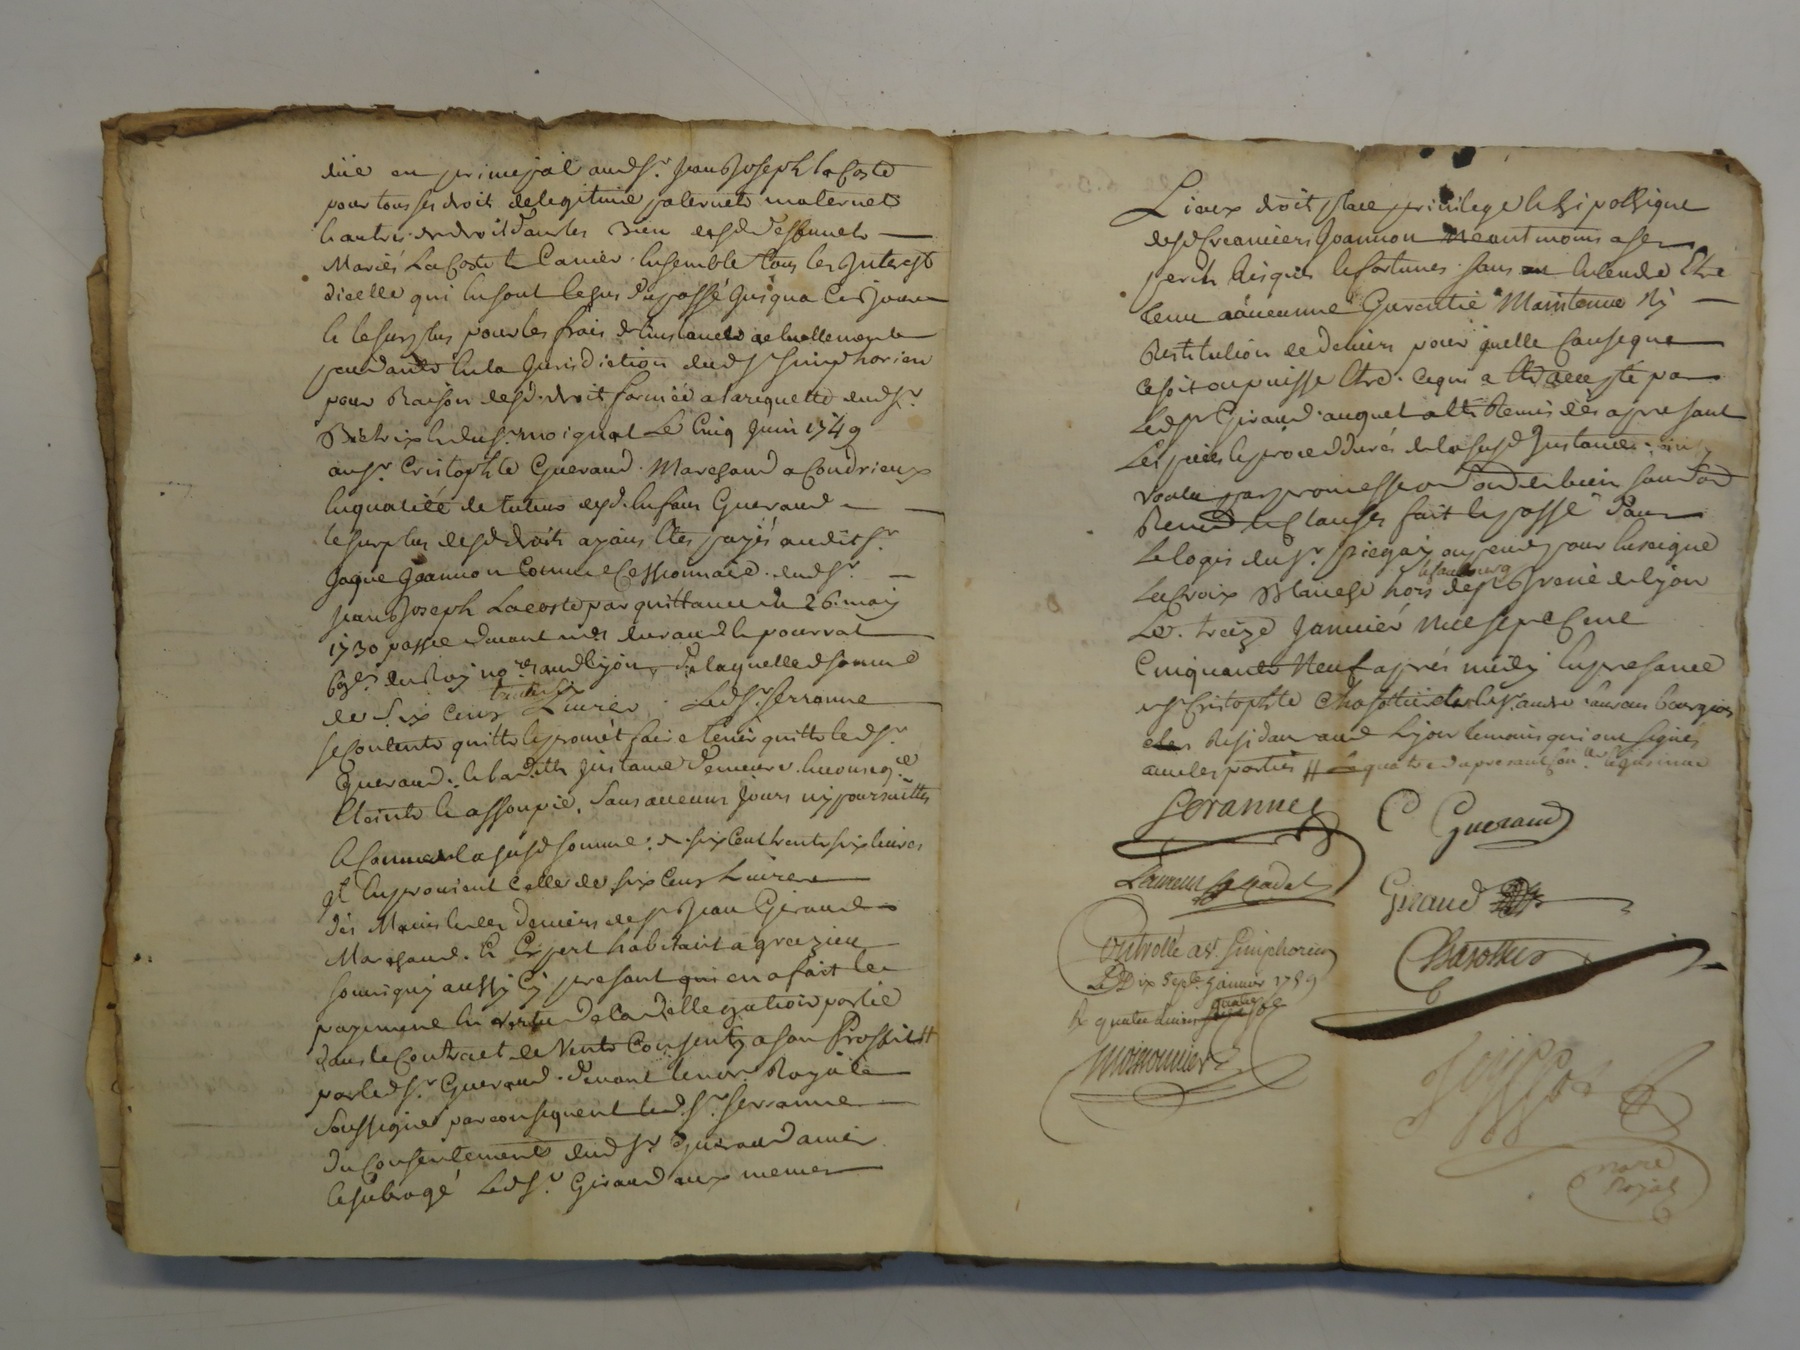 düe en principal aud Sr. Jean Joseph lacoste
pour tous ses droits de legitime paternels maternels
& autres de droit dans les bien desd deffunets
Mariés LaCoste & Canier. Ensemble tous les Interest
dicelle qui en sont Echus du passé Jusqua Ces Jour
& le surplus pour les frais de Linstance actuellement
pendante En la Jurisdiction dud St simphorien
pour Raison desd. droit formée a la requette dud Sr.
le Cinq Juin 1749
au Sr Cristophle Gueraud. Marchand a Condrieux
En qualité de tuteur desd. Enfans Gueraud
le surplus desd droits ayans Etés payés audit Sr.
Jaque Joannon Comme Cessionnaire. dud Sr.
Jean Joseph Lacoste par quittance du 26. may
1730 passée devant mes durand & pourrat
du Roy no.res aud Lyon, de laquelle d somme
de Six Cens trente six Livres. Led Sr. serranne
se Contente quitte & promet faire tenir quitte led Sr.
Gueraud. & lad. Instance demeure. En conseq.ce
Eteinte & assoupie. Sans aucuns Jours ny poursuittes
A Connu la susd somme. de six Cent trente six livres
Il En provient Celle de six Cens Livres
des Mains & des deniers de Sr Jean Giraud
Marchand. & Expert habitant a grezieu
soussigné aussy Cy present qui en a fait le
payement En vertu de la dellegation portée
dans le Contract de Vente Consenty a son Proffit
par led Sr. Gueraud. devant le nore. Royale
Soussigné par consequent led. Sr. serranne
du Consentement dud Sr Gueraud a mis
& subrogé Led Sr. Giraud aux memes
Lieux droit place privilege & hipotheque
desd Creanciers Joannon Neantmoins a ses
perils Risques & fortunes. sans Entendre Etre
tenu a aucunne Garentie Maintenue Ny
Restitution de deniers pour quelle Cause que
ce soit ou puisse Etre. Ce qui a Eté accepté par
Led Sr Giraud auquel a Eté Remis dès a presant
Les pieces & proceddures de la susd Instance.
voulu par promesse
Renon & Clauses fait & passé dans
Le logis du Sr. ou pend pour Enseigne
le faubourg
La Croix Blanche hors de St Irenée de Lyon
Le. treize Janvier Mil sept Cent
Cinquante Neuf après midy En presance
de Sr Cristophle Chasottier & de Sr. andré bourgeois
Residan aud Lyon temoins qui ont signés
avec les parties
Serranne
C Gueraud
Giraud
Controllé a St. Simphorien
Le Dix Sept Janvier 1759
R quatre Livres quatre sols
Moissonnier
Chasottier
nore
Royal